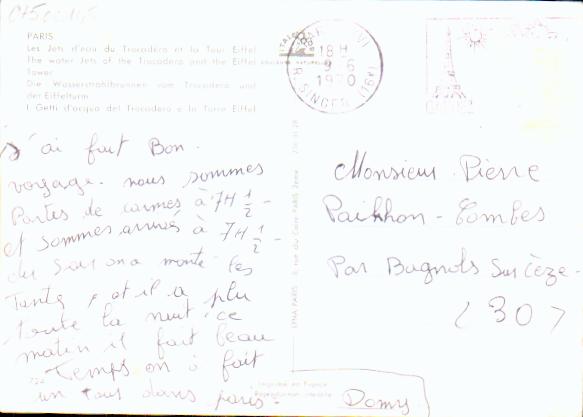 PARIS
Les Jets d'eau du Trocadéro et la Tour Eiffel
The water Jets of the Trocadéro and the Eiffel
Tower
Die Wasserstrahlbrunnen vom Trocadero und
der Eiffelturm
I Getti d'acqua del Trocadero e la Torre Eiffel
18 H
9 - 6
1970
R. SINGER (16e)
J'ai fait Bon
voyage. nous sommes
Parties de carmes à 7H 1/2 -
et sommes arrivés à 7H 1/2 -
du soir on a monté les
Tante, et il a plu
toute la nuit ce
matin il fait beau
Temps on à fait
un tour dans paris -
Imprimé en France
Reproduction interdite
Monsieur Pierre
Paikhon - Combes
Par Bagnols Sur Cèze -
(30)